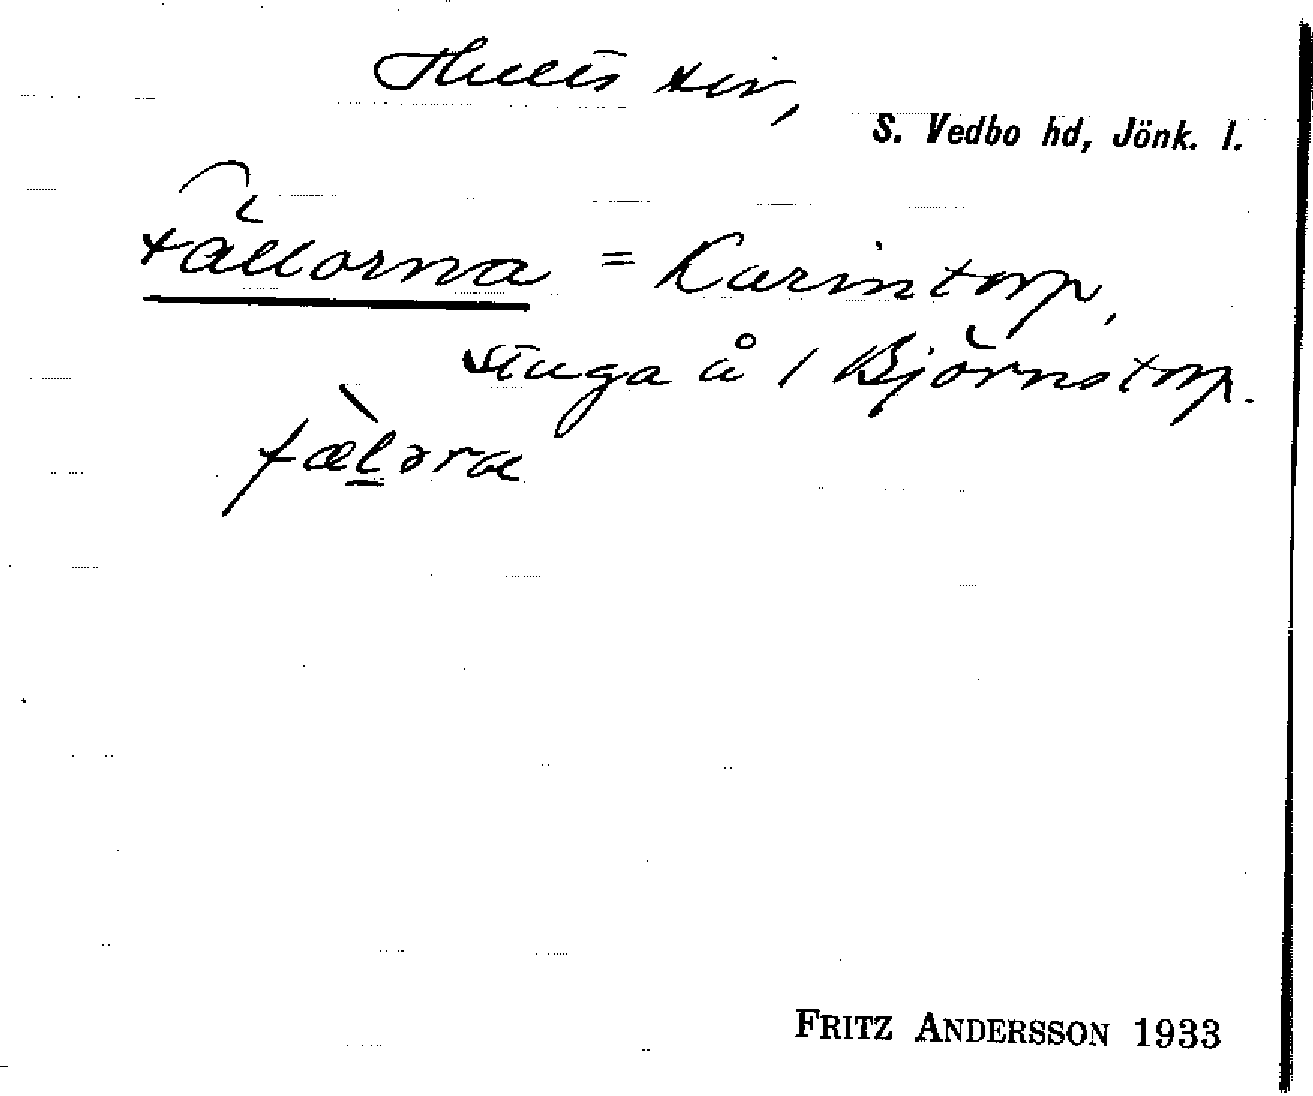 Hults sn,
S. Vedbo hd, Jönk. l.
Fällorna = Karintorp,
stuga å 1 Björnstorp.
fælǝra
FRITZ ANDERSSON 1933